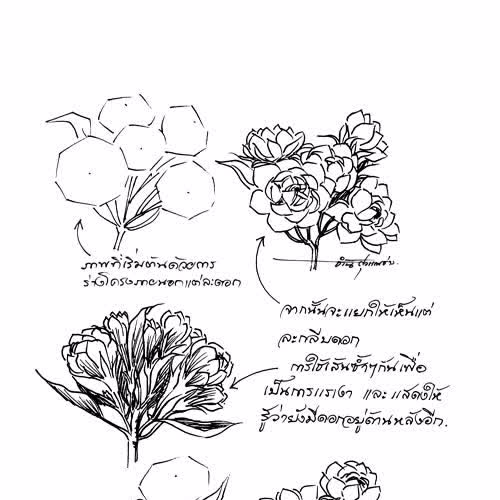 ภาพที่เริ่มต้นด้วยการ
ร่างโครงภายนอกแต่ละดอก
จากนั้นจะแยกให้เห็นแต่
ละกลีบดอก
การใช้เส้นซ้ำๆกันเพื่อ
เป็นการแรเงา และแสดงให้
รู้ว่ายังมีดอกอยู่ด้านหลังอีก.